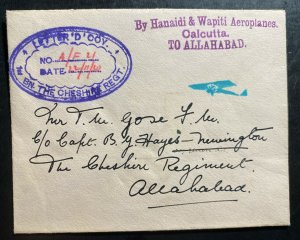 LETTER "D" COY.
NO. A/F 21
DATE 22/11/30
BN. THE CHESHIRE REGT.
By Hanaidi & Wapiti Aeroplanes.
Calcutta.
TO ALLAHABAD.
Mr T. M. Gose F. M.
C/o Capt. B. Y. Hayes-Newington
The Cheshire Regiment.
Allahabad.